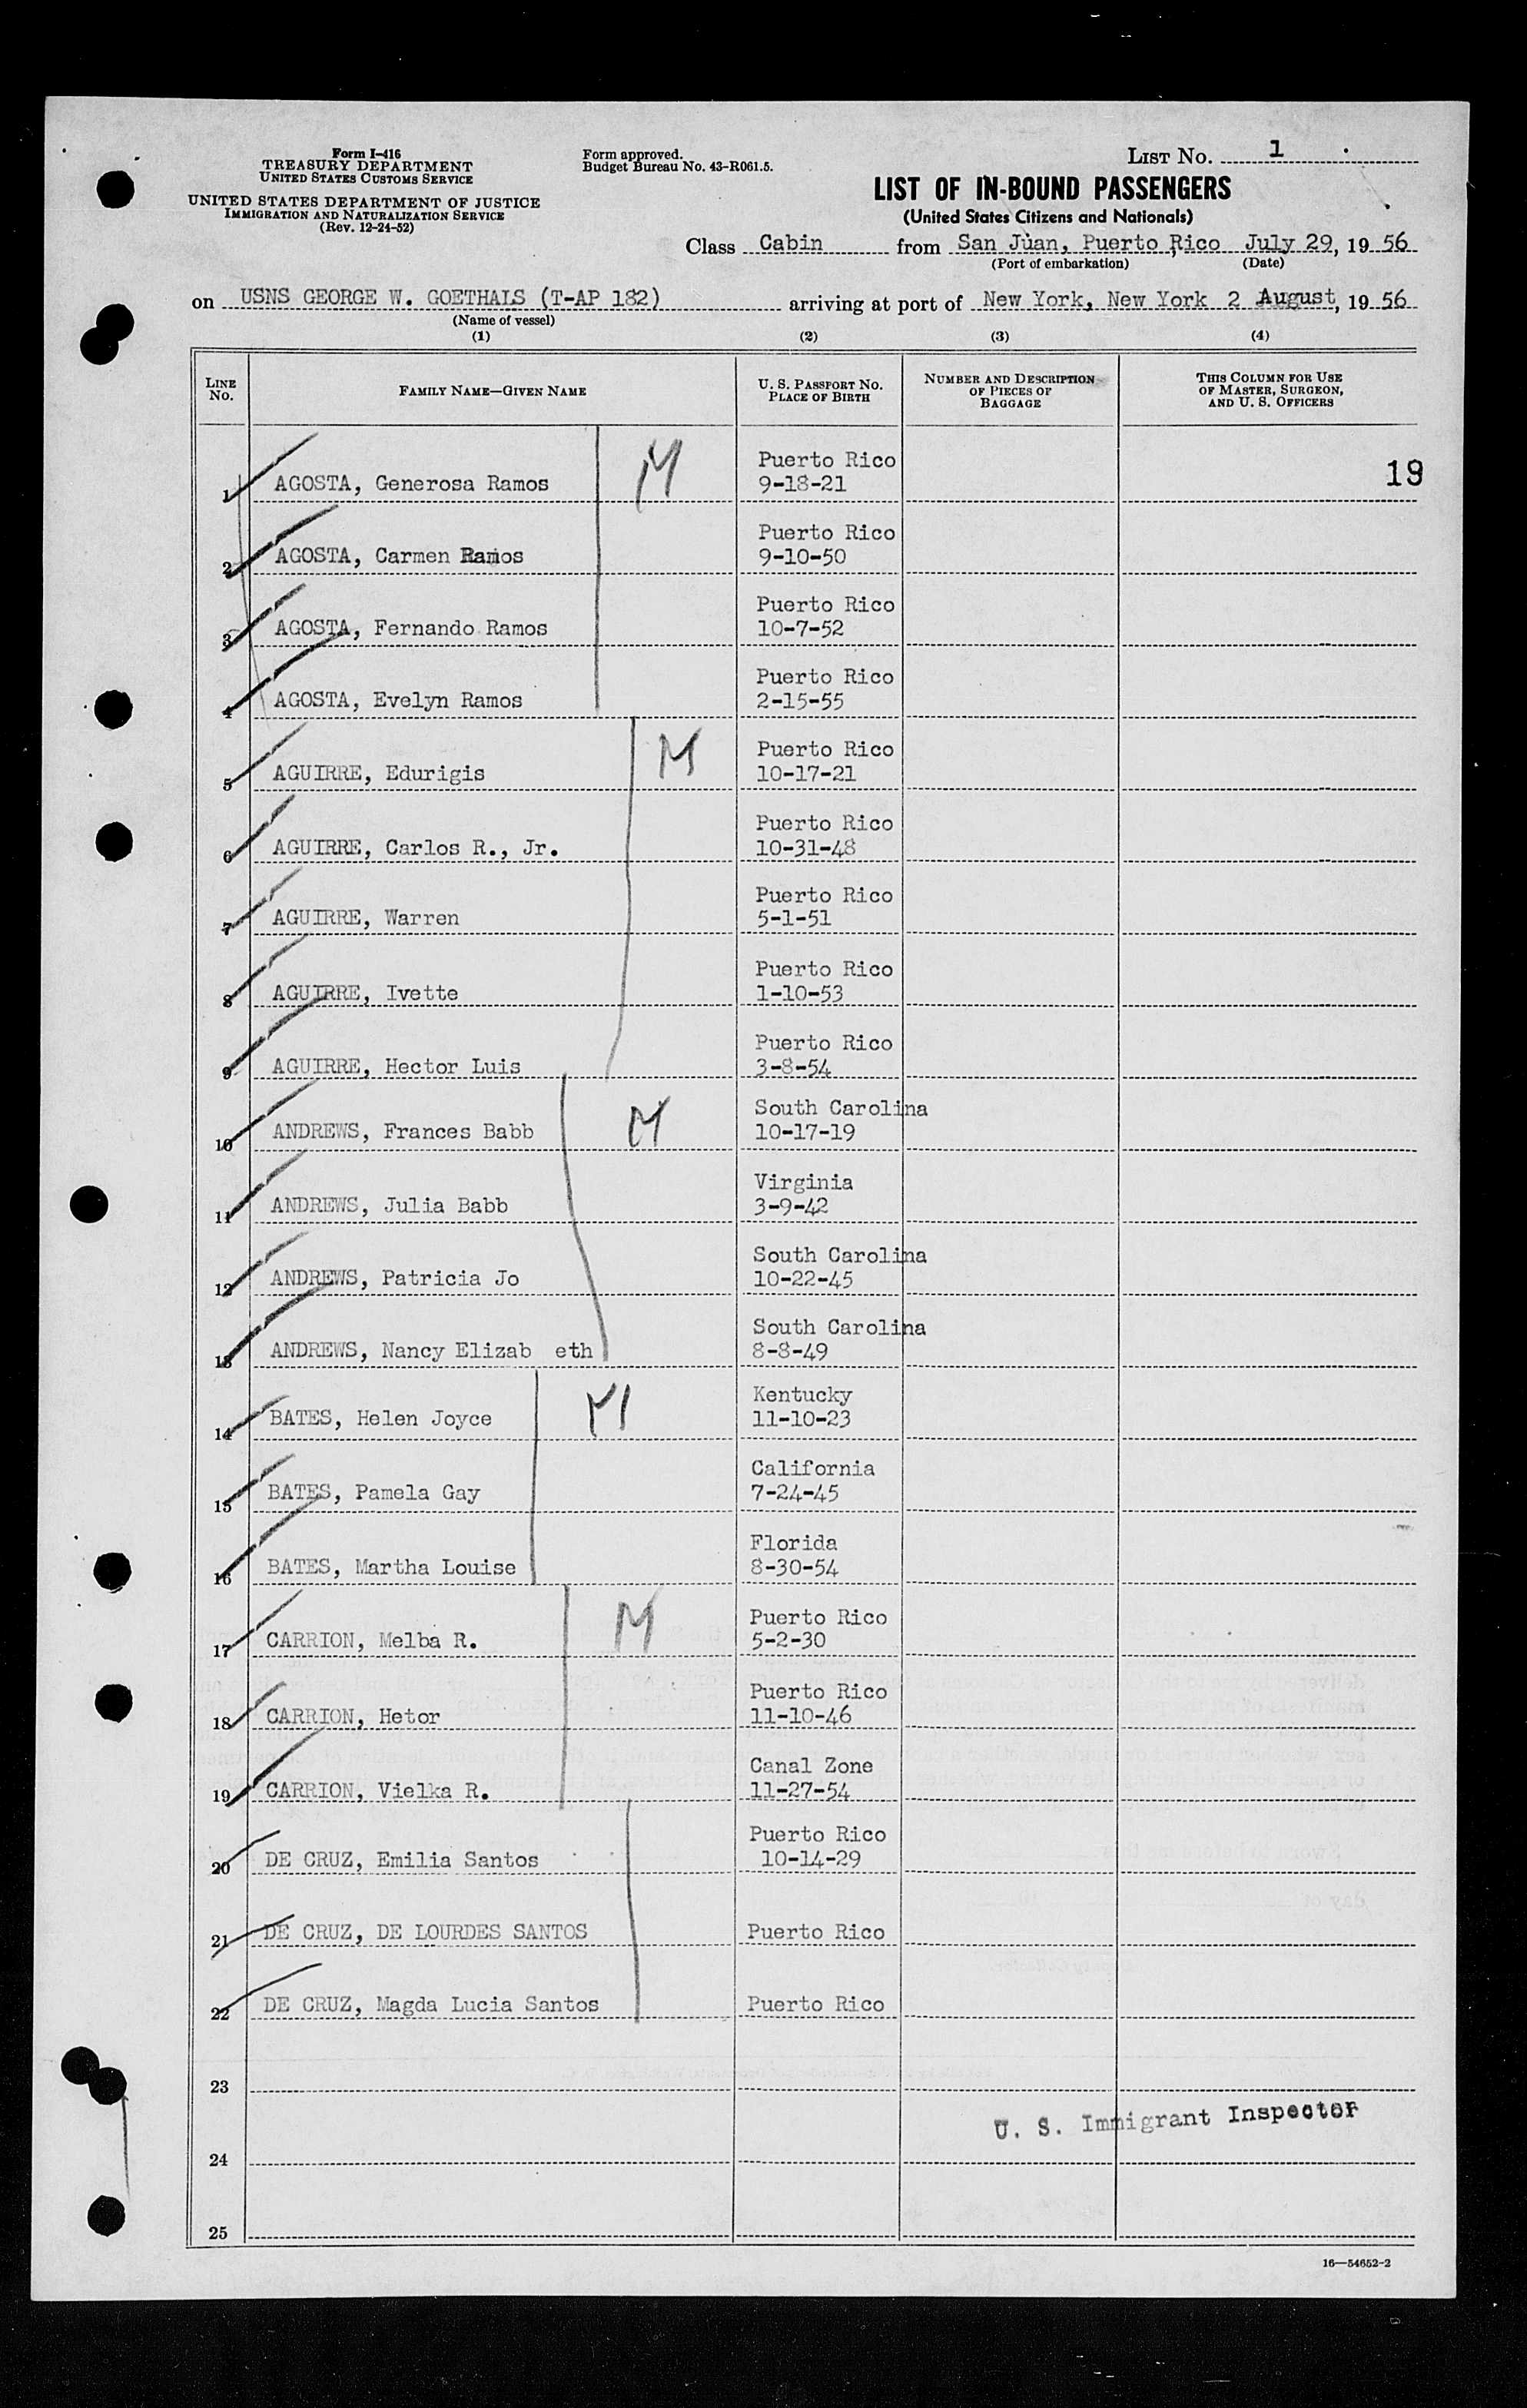 Form I-416
TREASURY DEPARTMENT
UNITED STATES CUSTOMS SERVICE
UNITED STATES DEPARTMENT OF JUSTICE
IMMIGRATION AND NATURALIZATION SERVICE
(Rev. 12-24-52)
Form approved.
Budget Bureau No. 43-R061.5.
LIST NO. 1
LIST OF IN-BOUND PASSENGERS
(United States Citizens and Nationals)
Class Cabin from San Juan, Puerto Rico July 29, 1956
(Port of embarkation) (Date)
on USNS GEORGE W. GOETHALS (T-AP 182) arriving at port of New York, New York 2 August, 1956
(Name of vessel)
(1) (2) (3) (4)
LINE NO. FAMILY NAME—GIVEN NAME U. S. PASSPORT NO. PLACE OF BIRTH NUMBER AND DESCRIPTION OF PIECES OF BAGGAGE THIS COLUMN FOR USE OF MASTER, SURGEON, AND U. S. OFFICERS
Puerto Rico
1 AGOSTA, Generosa Ramos M 9-18-21 19
Puerto Rico
2 AGOSTA, Carmen Ramos 9-10-50
Puerto Rico
3 AGOSTA, Fernando Ramos 10-7-52
Puerto Rico
4 AGOSTA, Evelyn Ramos 2-15-55
Puerto Rico
5 AGUIRRE, Edurigis M 10-17-21
Puerto Rico
6 AGUIRRE, Carlos R., Jr. 10-31-48
Puerto Rico
7 AGUIRRE, Warren 5-1-51
Puerto Rico
8 AGUIRRE, Ivette 1-10-53
Puerto Rico
9 AGUIRRE, Hector Luis 3-8-54
South Carolina
10 ANDREWS, Frances Babb M 10-17-19
Virginia
11 ANDREWS, Julia Babb 3-9-42
South Carolina
12 ANDREWS, Patricia Jo 10-22-45
South Carolina
13 ANDREWS, Nancy Elizab eth 8-8-49
Kentucky
14 BATES, Helen Joyce M 11-10-23
California
15 BATES, Pamela Gay 7-24-45
Florida
16 BATES, Martha Louise 8-30-54
Puerto Rico
17 CARRION, Melba R. M 5-2-30
Puerto Rico
18 CARRION, Hetor 11-10-46
Canal Zone
19 CARRION, Vielka R. 11-27-54
Puerto Rico
20 DE CRUZ, Emilia Santos 10-14-29
21 DE CRUZ, DE LOURDES SANTOS Puerto Rico
22 DE CRUZ, Magda Lucia Santos Puerto Rico
23
U. S. Immigrant Inspector
24
25
16—54652-2